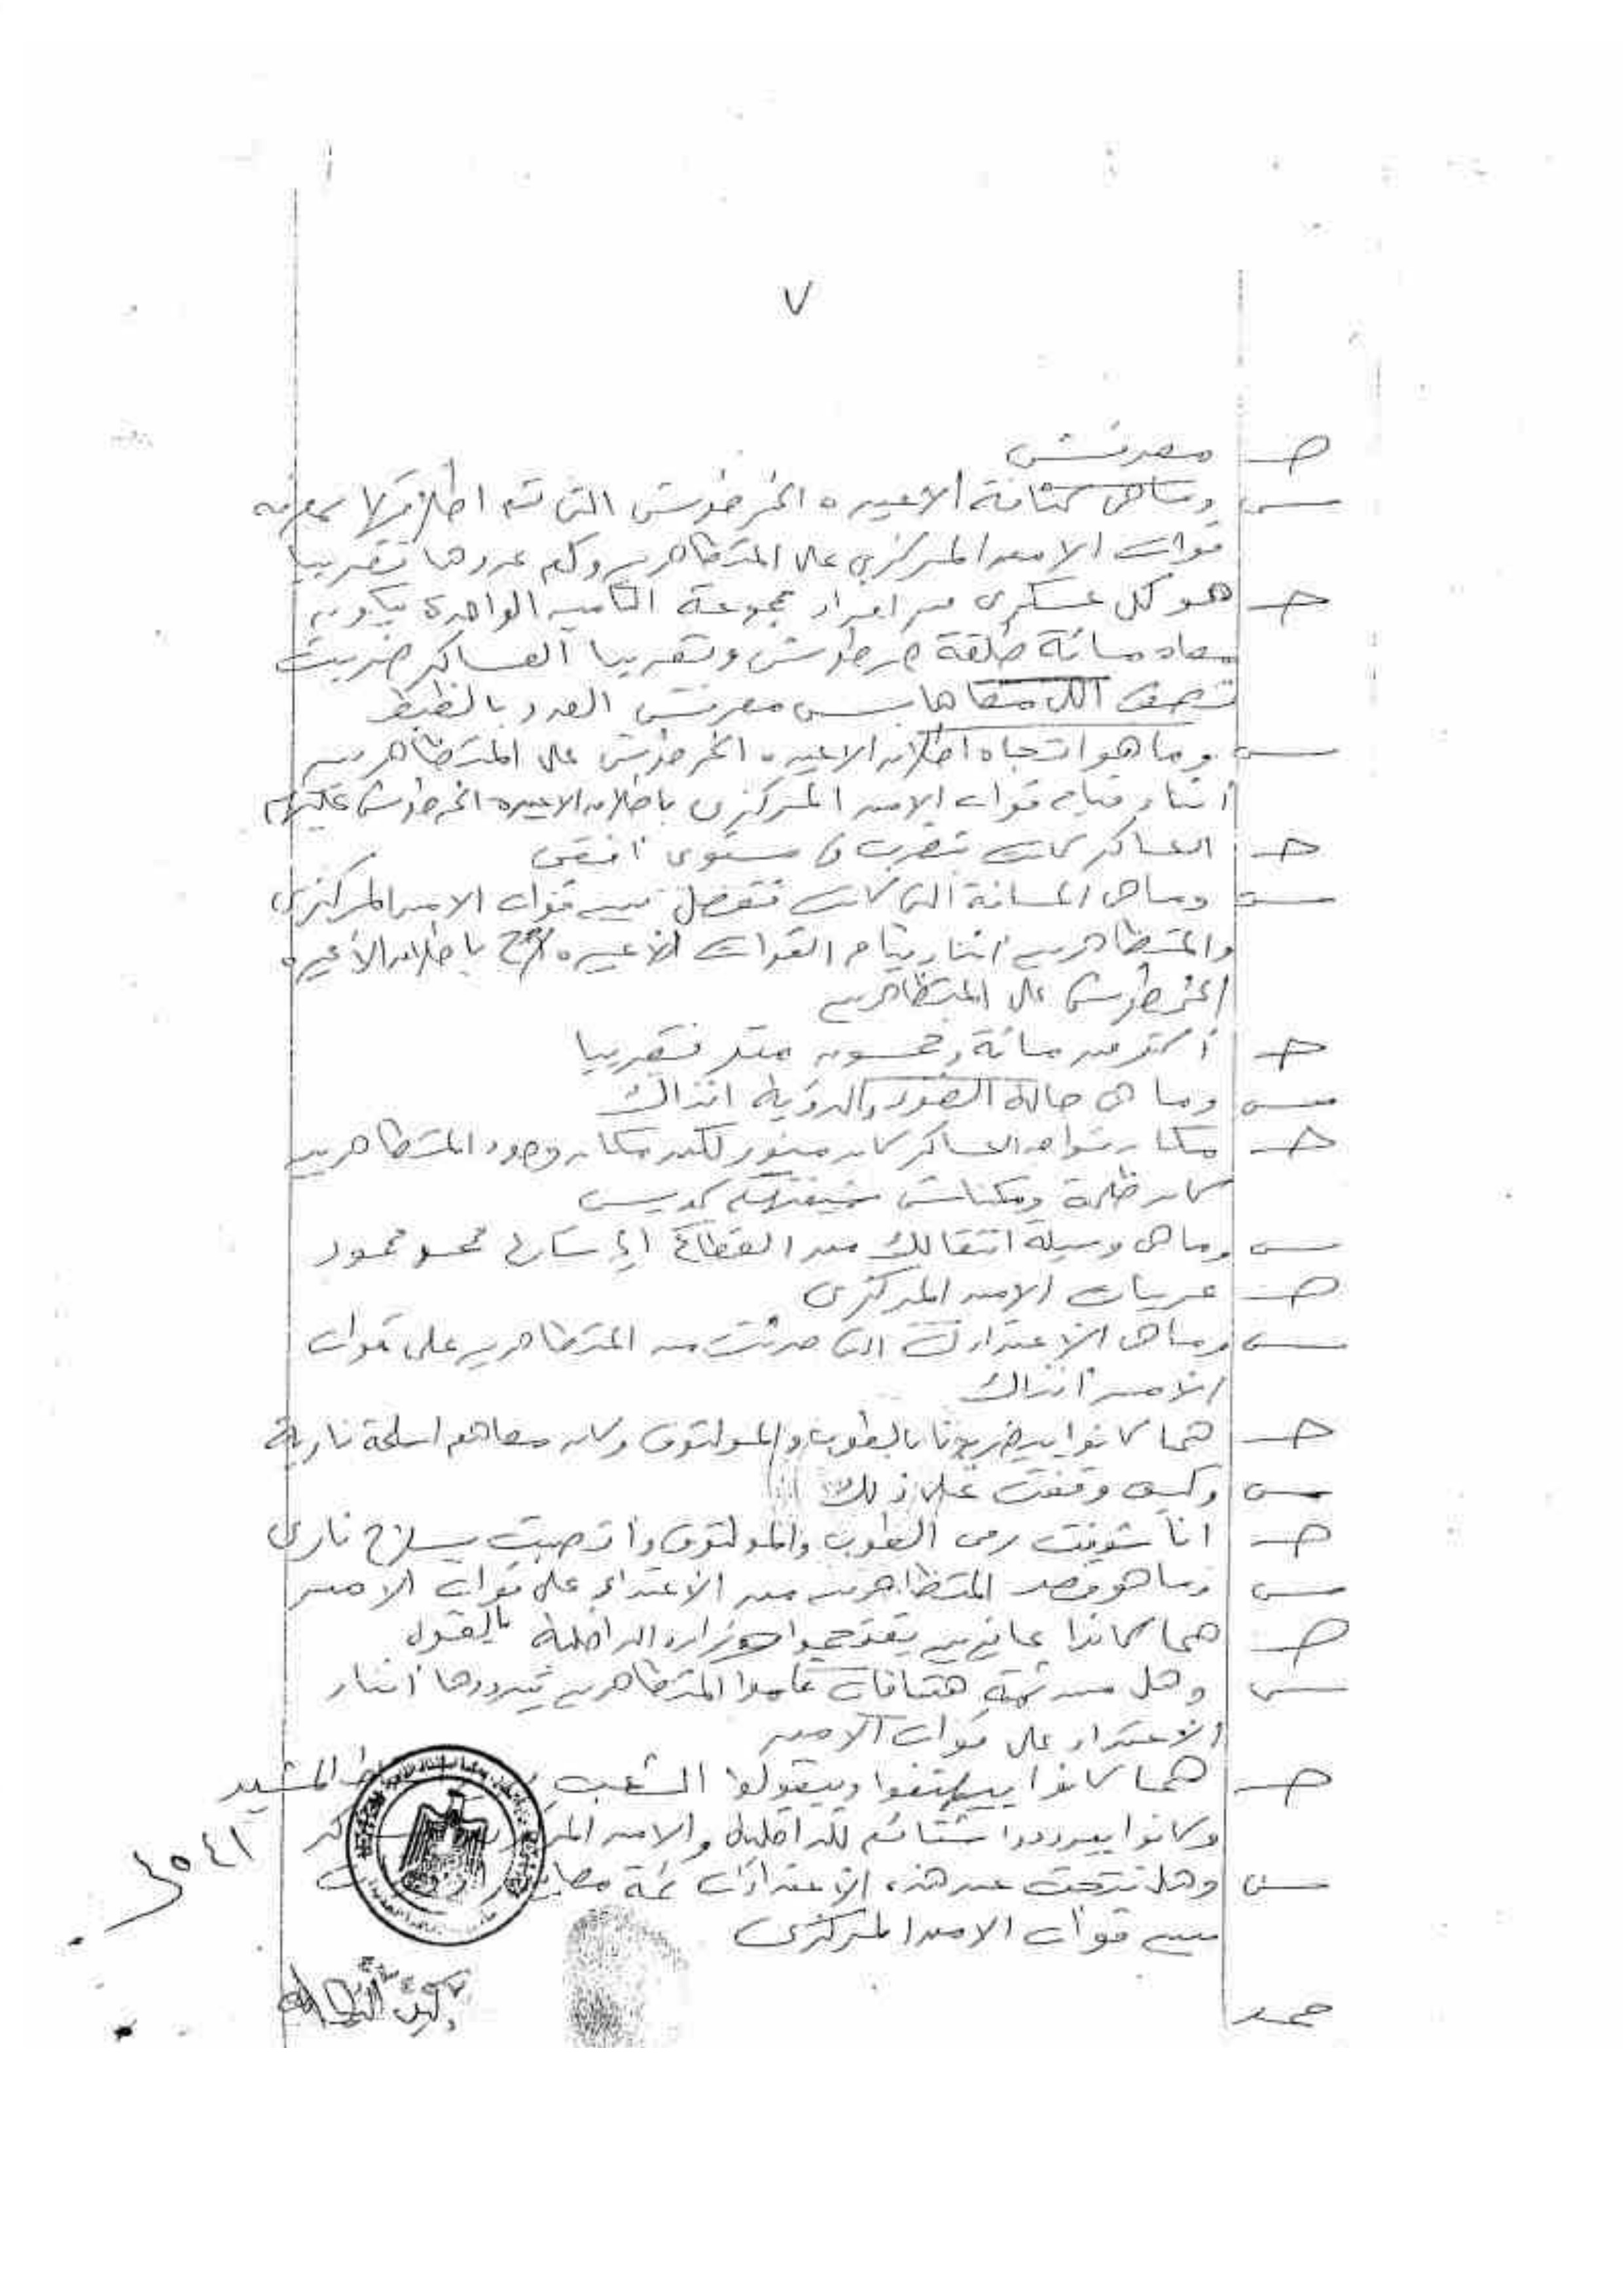 ٧
ج معرفش
س وما هى كثافة الاعيره الخرطوش التى تم اطلاقها بمعرفه
قوات الامن المركزى على المتظاهرين وكم عددها تقريبا
ج هو كل عسكرى من افراد مجموعة التأمين الواحدة بيكون
معاه مائة طلقة خرطوش وتقريبا العساكر ضربت
نصف اللى معاها بس معرفش العدد بالظبط
س وما هو اتجاه اطلاق الاعيره الخرطوش على المتظاهرين
أثناء قيام قوات الامن المركزى باطلاق الاعيره الخرطوش عليهم
ج العساكر كانت بتضرب فى مستوى افقى
س وما هى المسافة التى كانت تفصل بين قوات الامن المركزى
والمتظاهرين اثناء قيام القوات باطلاق الأعيره
الخرطوش على المتظاهرين
ج أكتر من مائة وخمسون متر تقريبا
س وما هى حالة الضوء والرؤية انذاك
ج مكان تواجد العساكر كان منور لكن مكان وجود المتظاهرين
كان ظلمة ومكناش شيفنهم كويس
س وما هى وسيلة انتقالك من القطاع الى شارع محمد محمود
ج عربيات الامن المركزى
س وما هى الاعتداءات التى حدثت من المتظاهرين على قوات
الامن أنذاك
ج هما كانوا بيضربونا بالطوب والمولتوف وكان معاهم اسلحة نارية
س وكيف وقفت على ذلك
ج انا شوفت رمى الطوب والمولتوف وأتصبت بسلاح نارى
س وما هو قصد المتظاهرين من الاعتداء على قوات الامن
ج هما كانوا عايزين يقتحموا وزارة الداخلية بالقوه
س وهل من ثمة هتافات المتظاهرين بترديدها أثناء
الاعتداء على قوات الامن
ج هما كانوا بيهتفوا وبيقولوا الشعب المشير
وكانوا بيرددوا شتائم للداخلية والامن
س وهل نتجت عن هذه الاعتداءات ثمة
بين قوات الامن المركزى